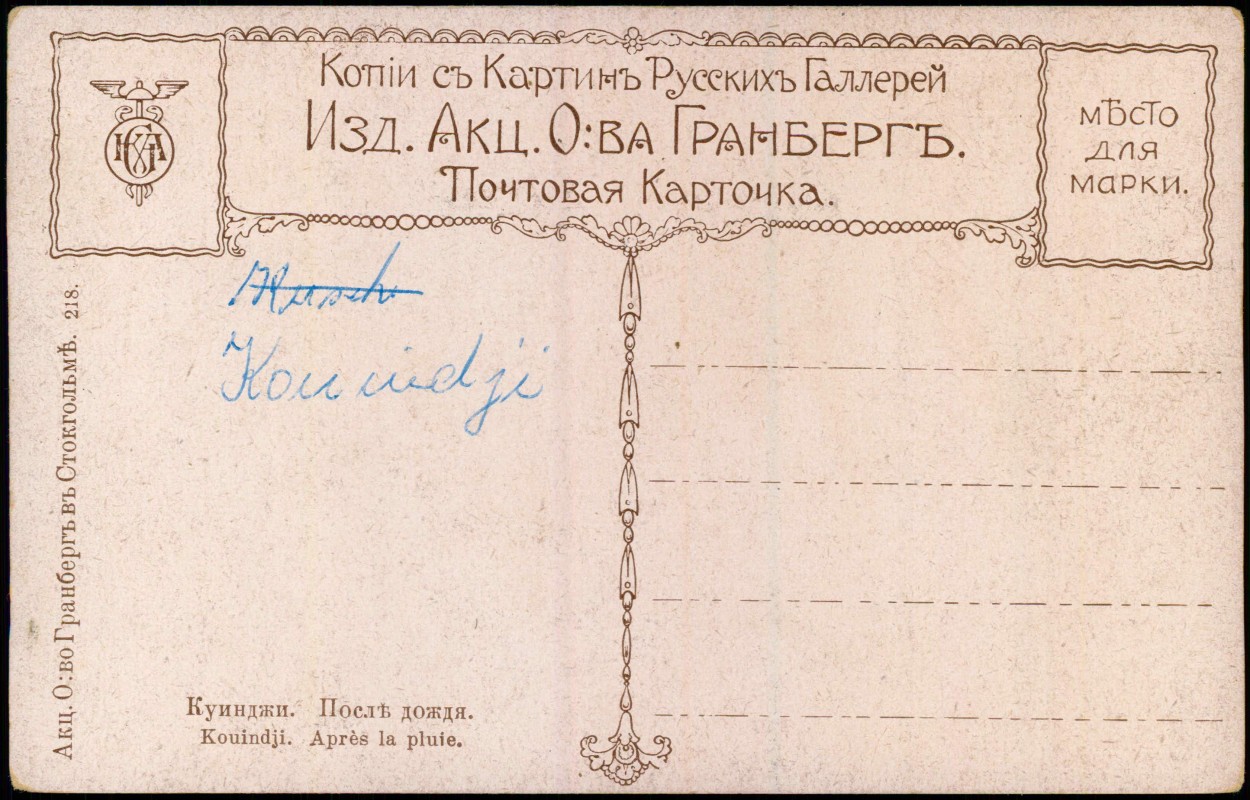 Копіи съ Картинъ Русскихъ Галлерей
Изд. Акц. О:ва Гранбергъ.
Почтовая Карточка.
мѣсто
для
марки.
Kouindji
Акц. О:во Гранбергъ въ Стокгольмѣ. 218.
Куинджи. Послѣ дождя.
Kouindji. Après la pluie.